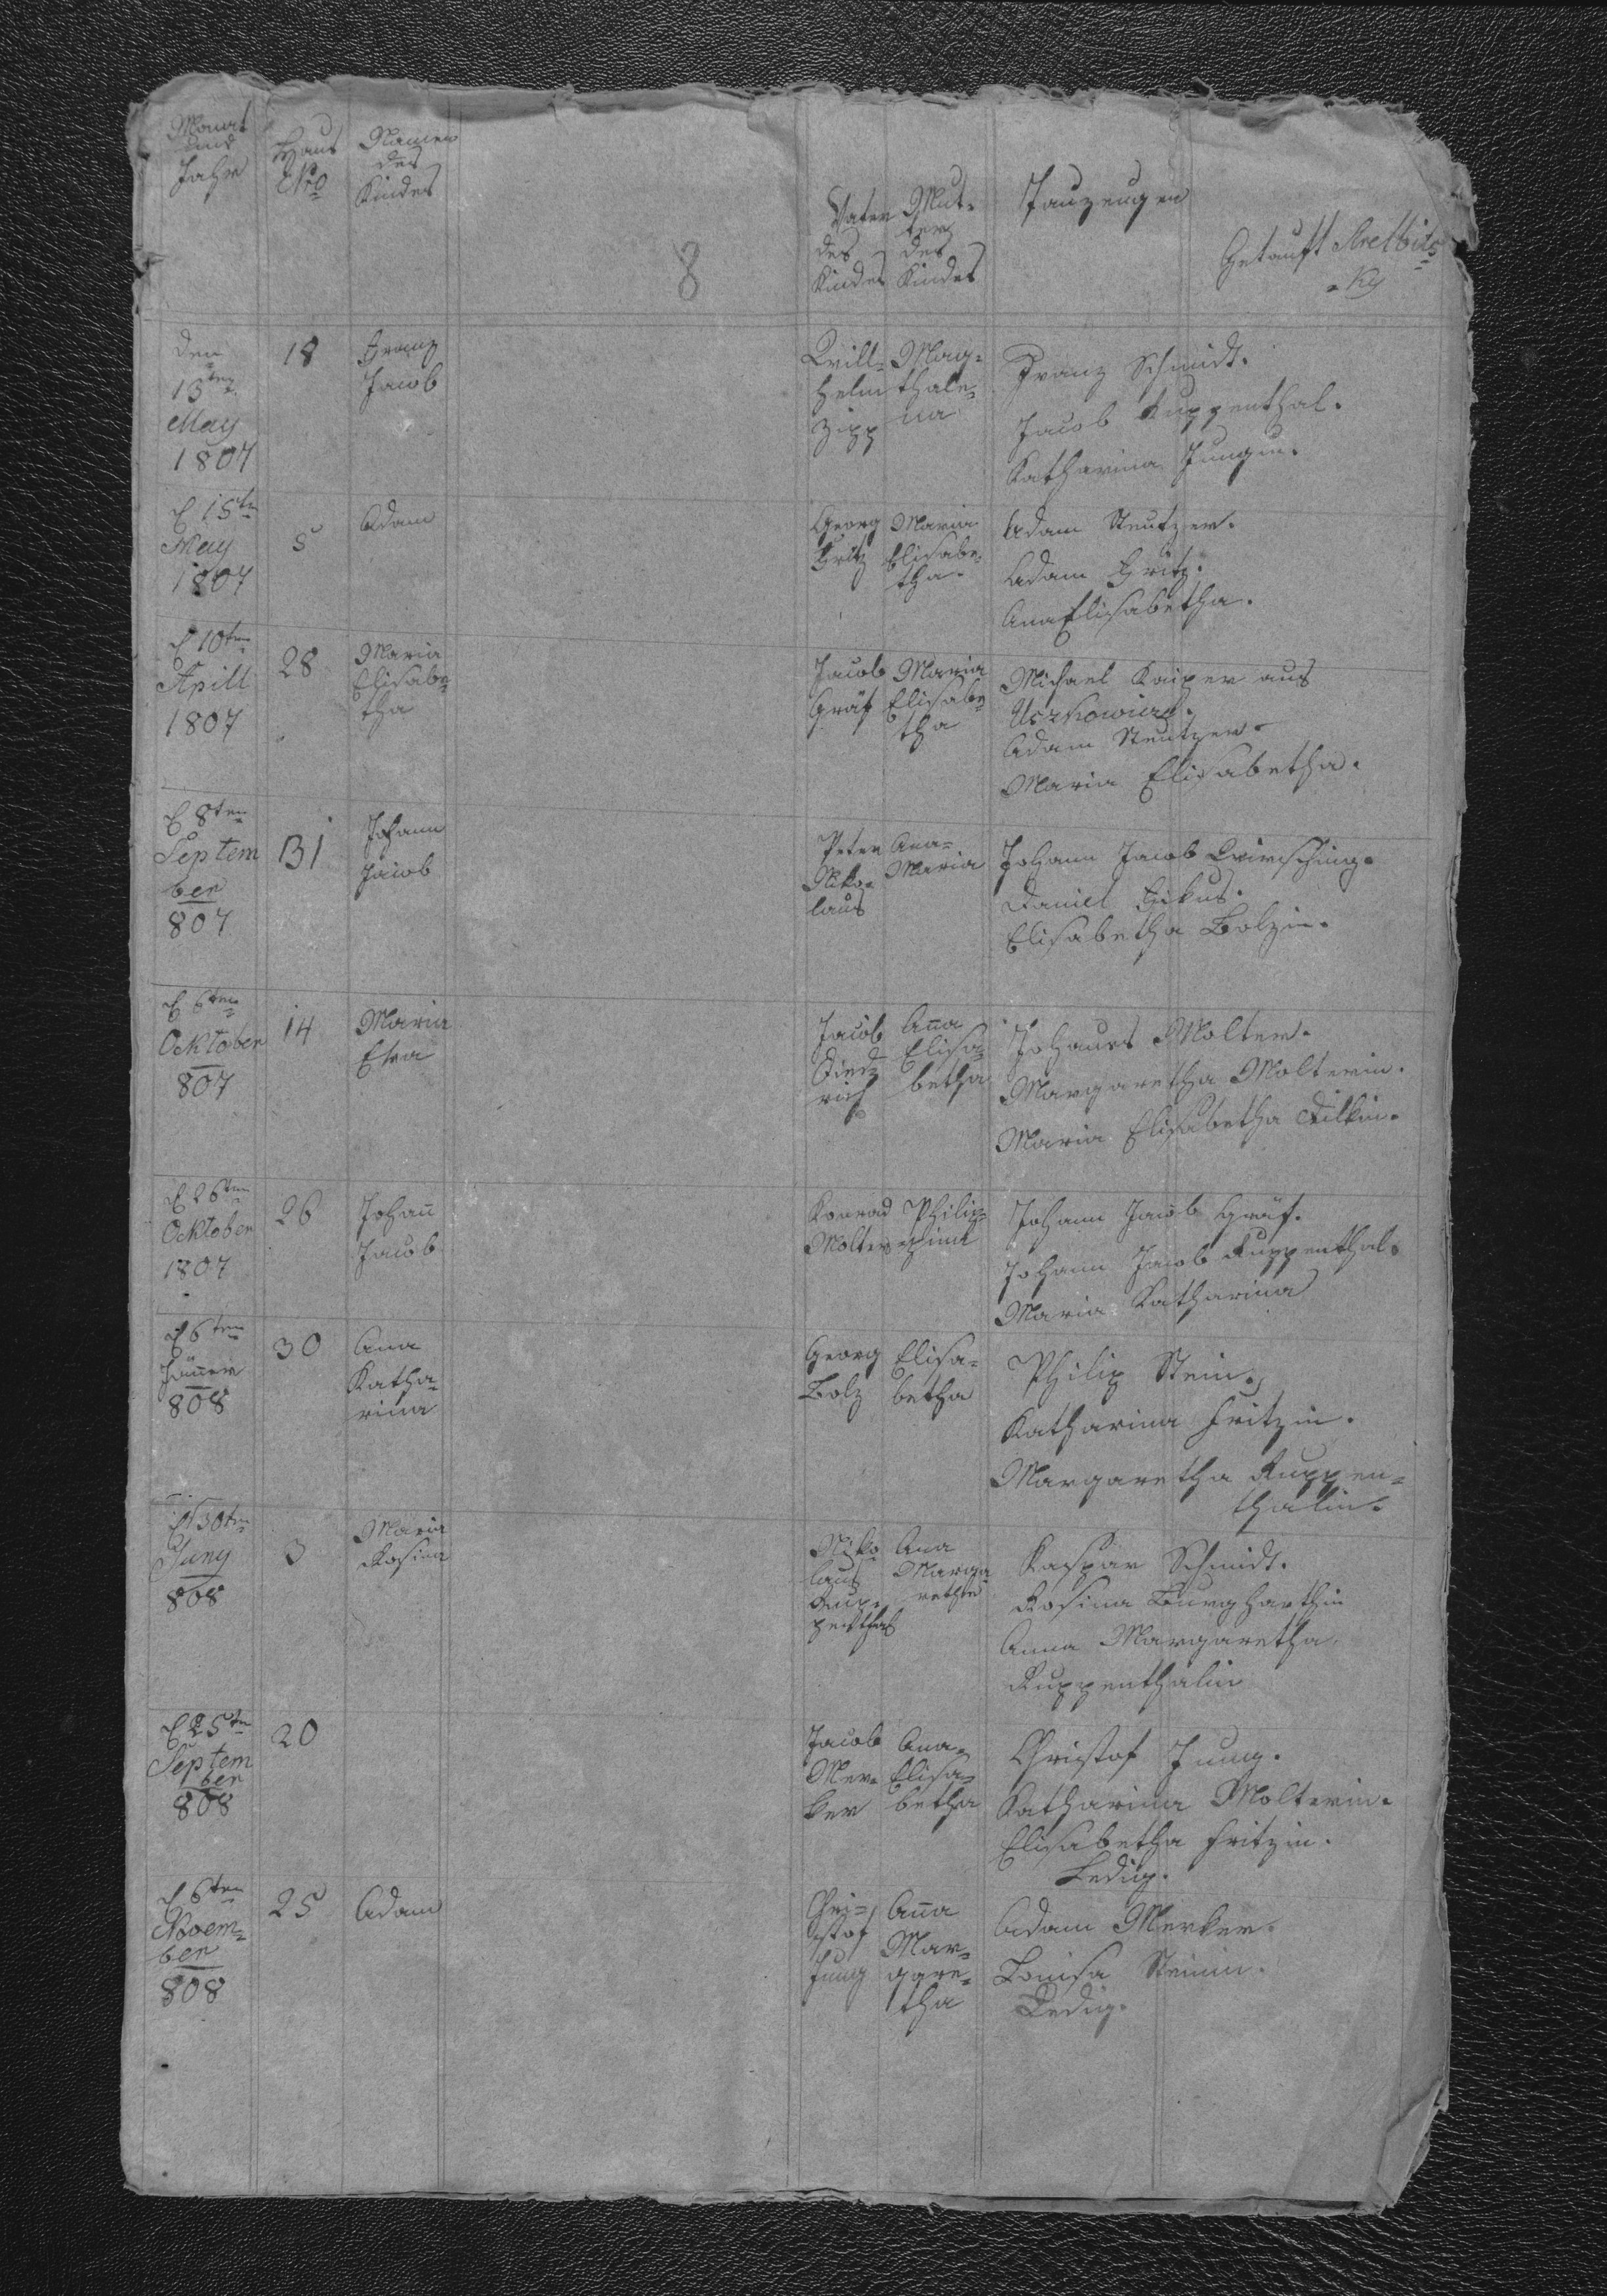 Monat
und
Jahr
Haus
Nro
Namen
des
Kindes
8
Vater
des
Kindes
Mut-
ter
des
Kindes
Tauzeugen
Getauft
ky
den
13ten
May
1807
18
Franz
Jacob
Will-
helm
Zipp
Mag-
thale-
na
Franz Schmidt.
Jacob Ruppenthal.
Katharina Jungin.
d 15tn
May
1807
5
Adam
Georg
Fritz
Maria
Elisabe-
tha.
Adam Steutzer.
Adam Fritz.
Ana Elisabetha.
d 10ten
Apill
1807
28
Maria
Elisabe-
tha
Jacob
Gräf
Maria
Elisabe-
tha
Michael Kaiper aus
Uszkowice.
Adam Steutzer
Maria Elisabetha.
d 8ten
Septem
ber
807
31
Johann
Jacob
Peter
Niko-
laus
Ana-
Maria
Johann Jacob
Daniel
Elisabetha Bolzin.
d 6ten
Ocktober
807
14
Maria
Eva
Jacob
Died-
rich
Anna
Elisa-
betha
Johanes Molter.
Margaretha Molterin.
Maria Elisabetha
d 26ten
Ocktober
1807
26
Johann
Jacob
Konrad
Molter
Philip-
pina
Johann Jacob Gräf.
Johann Jacob Ruppenthal.
Maria Katharina
d 6ten
Jänner
808
30
Ana
Katha-
rina
Georg
Bolz
Elisa-
betha
Philip Stein.
Katharina Fritzin.
Margaretha Ruppen-
thalin.
d 30ten
Juny
808
3
Maria
Rosina
Niko-
laus
Rup-
penthal
Ana
Marga-
retha
Kaspar Schmidt.
Rosina Burgharthin
Anna Margaretha
Ruppenthalin
d 25tn
Septem
ber
808
20
Jacob
Mer-
ker
Ana-
Elisa-
betha
Christof Jung.
Katharina Molterin.
Elisabetha Fritzin.
Ledig.
d 6ten
Novem-
ber
808
25
Adam
Chri-
stof
Jung
Anna
Mar-
gare-
tha
Adam Merker.
Louisa Steinin.
Ledig.